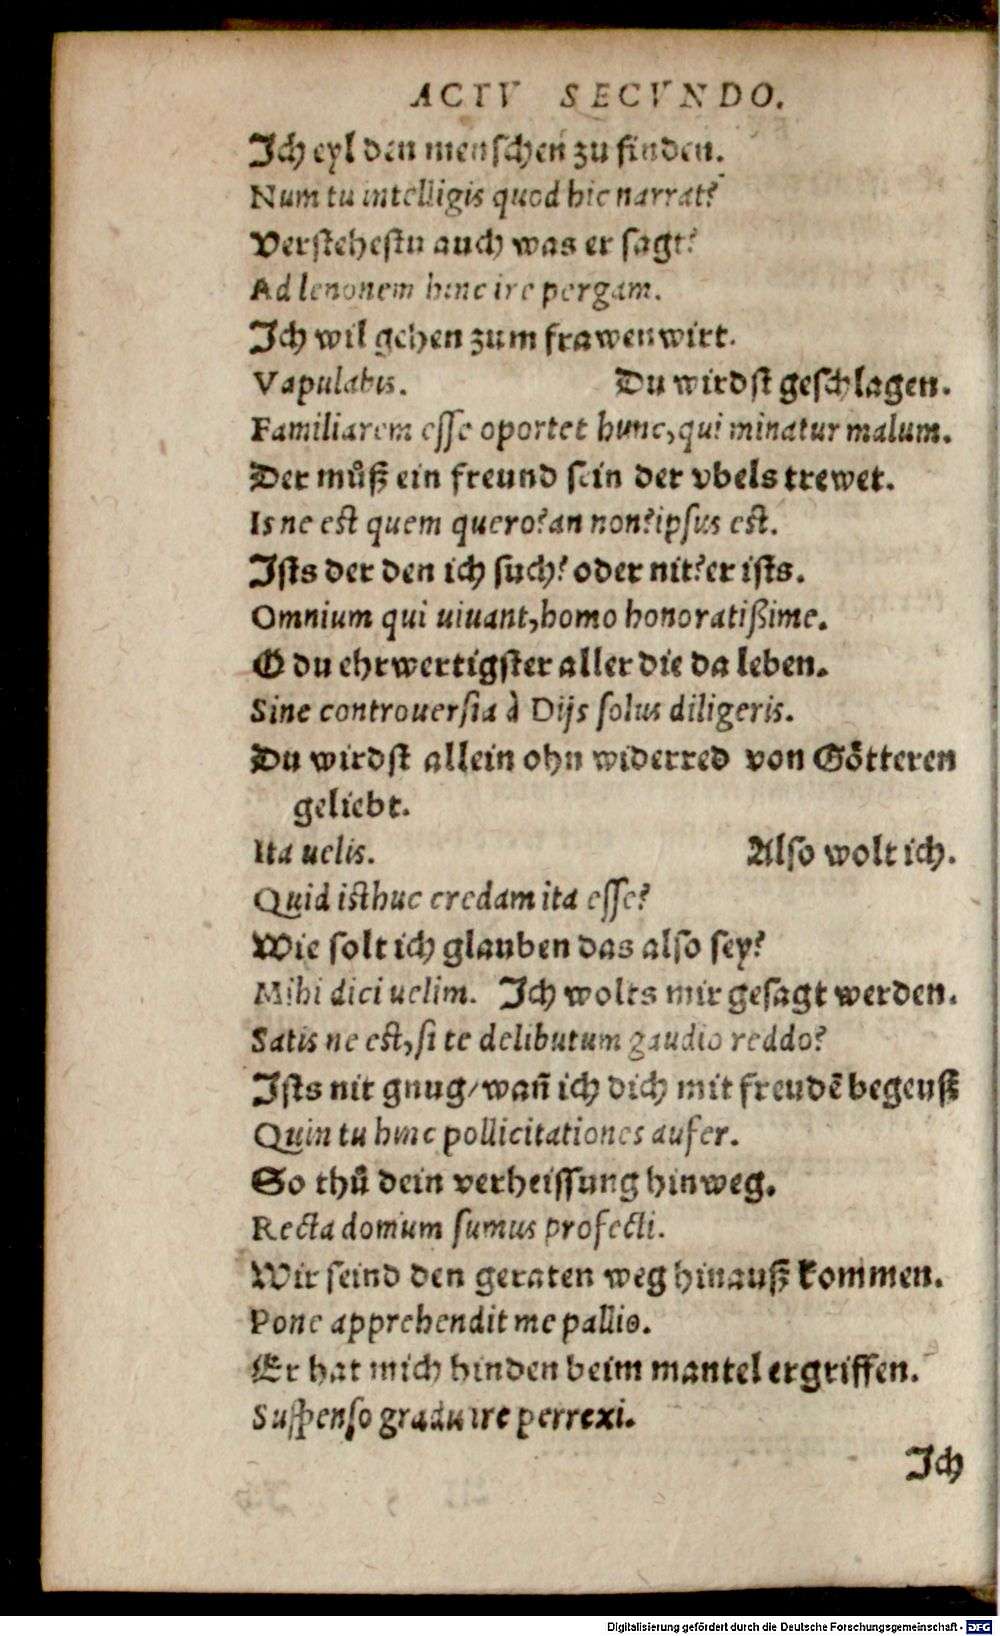 ACTV SECVNDO.
Ich eyl den menschen zu finden.
Num tu intelligis quod hic narrat?
Verstehestu auch was er sagt?
Ad lenonem hinc ire pergam.
Ich wil gehen zum frawenwirt.
Vapulabis. Du wirdst geschlagen.
Familiarem esse oportet hunc, qui minatur malum.
Der můß ein freund sein der vbels trewet.
Is ne est quem quero? an non? ipsus est.
Ists der den ich such? oder nit? er ists.
Omnium qui uiuant, homo honoratißime.
O du ehrwertigster aller die da leben.
Sine controuersia à Dijs solus diligeris.
Du wirdst allein ohn widerred von Götteren
geliebt.
Ita uelis. Also wolt ich.
Quid isthuc credam ita esse?
Wie solt ich glauben das also sey?
Mihi dici uelim. Ich wolts mir gesagt werden.
Satis ne est, si te delibutum gaudio reddo?
Ists nit gnug/wañ ich dich mit freudē begeuß
Quin tu hinc pollicitationes aufer.
So thů dein verheissung hinweg.
Recta domum sumus profecti.
Wir seind den geraten weg hinauß kommen.
Pone apprehendit me pallio.
Er hat mich hinden beim mantel ergriffen.
Suspenso gradu ire perrexi.
Ich
Digitalisierung gefördert durch die Deutsche Forschungsgemeinschaft - DFG